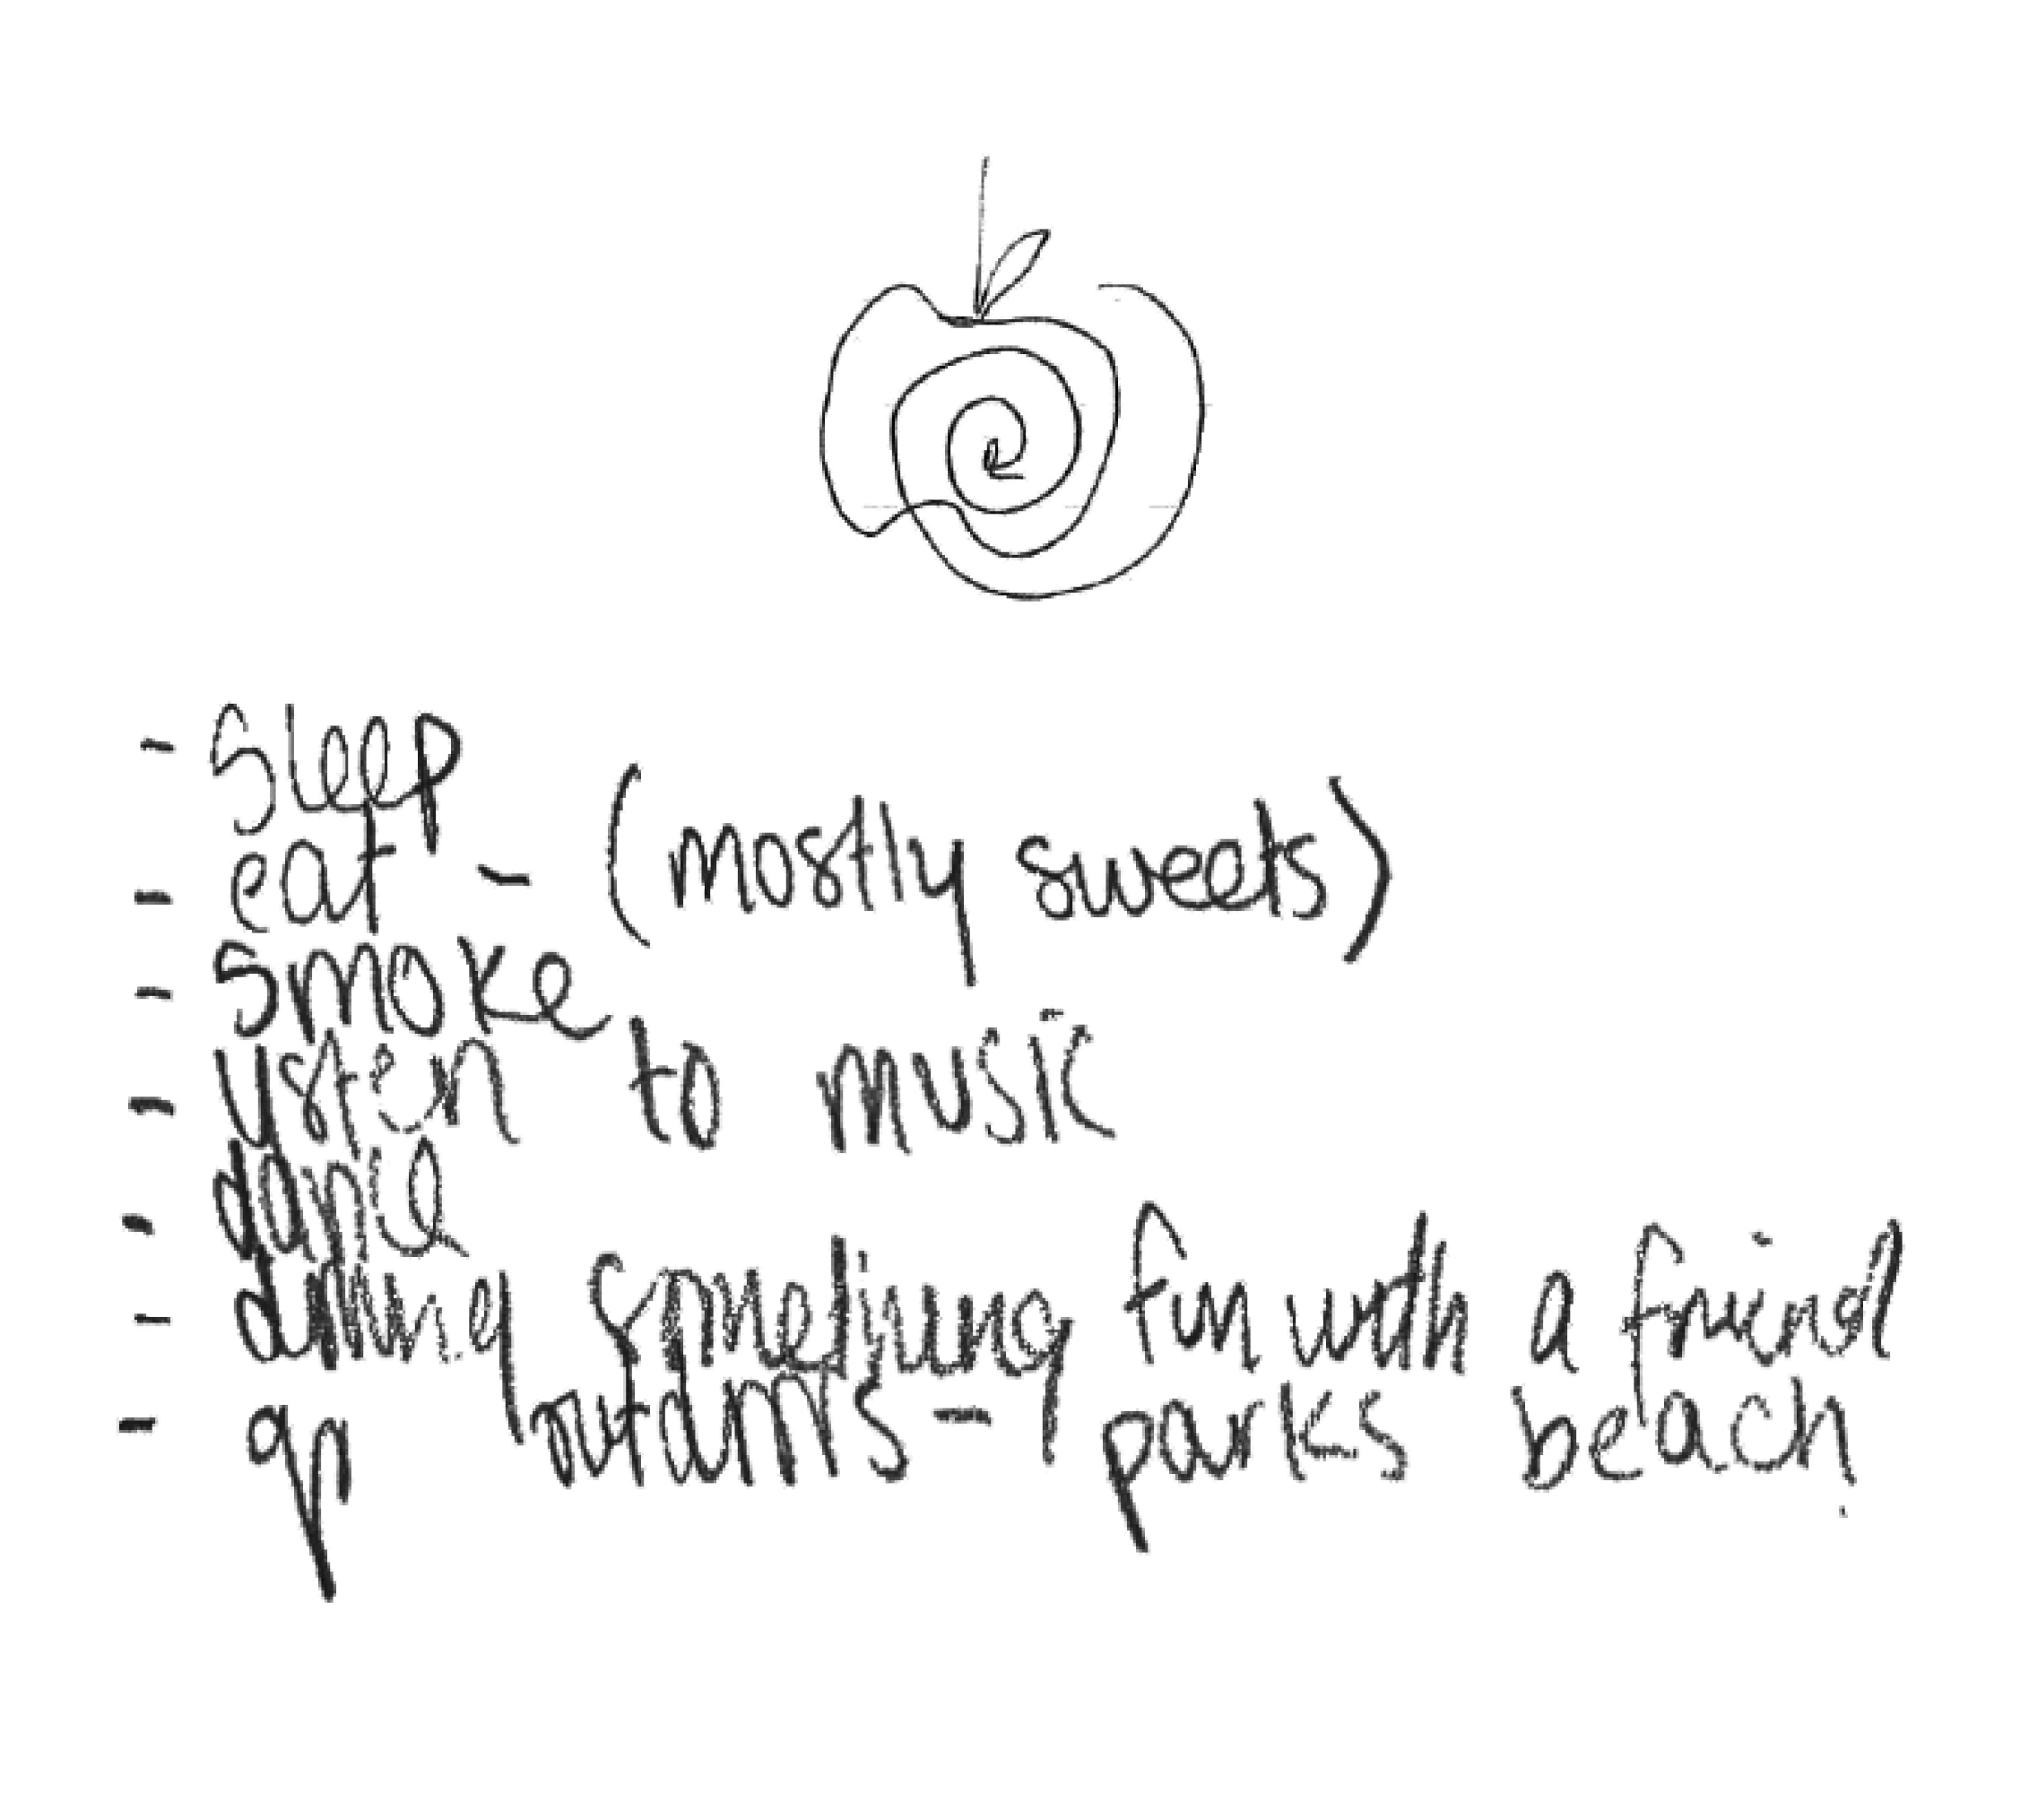 - sleep
- eat - (mostly sweets)
- smoke
- listen to music
- dance
- doing something fun with a friend
- go outdoors - parks beach